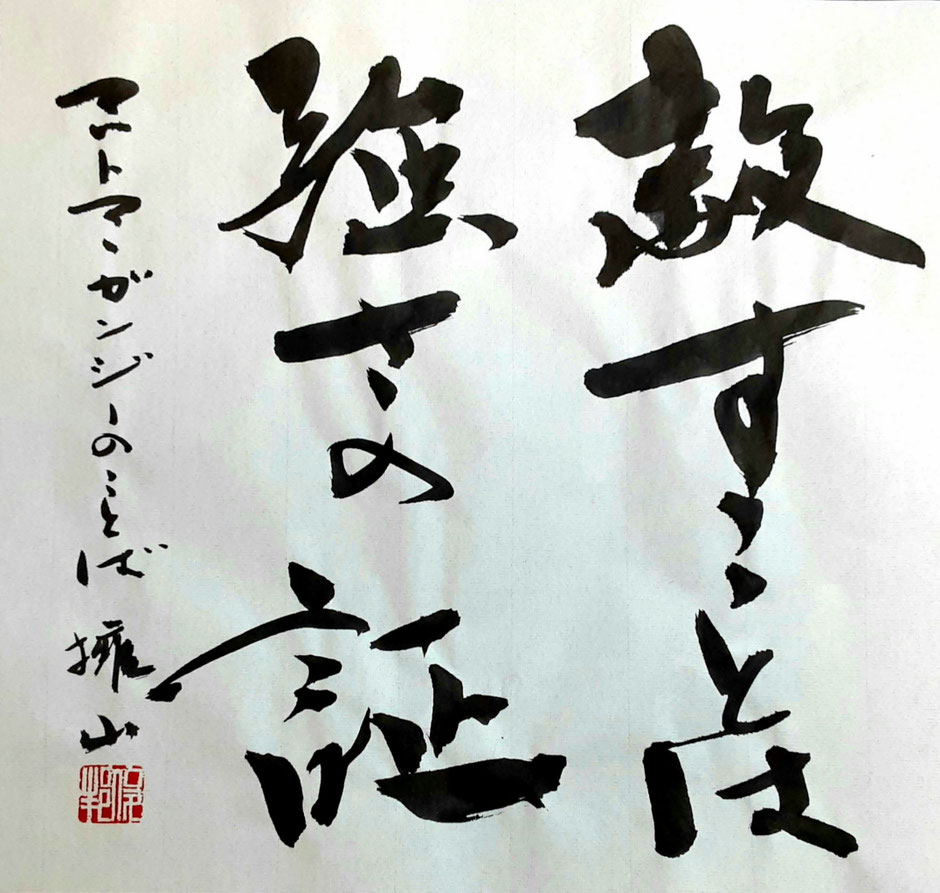 赦すことは
強さの証
マハトマ・ガンジーのことば 擁山